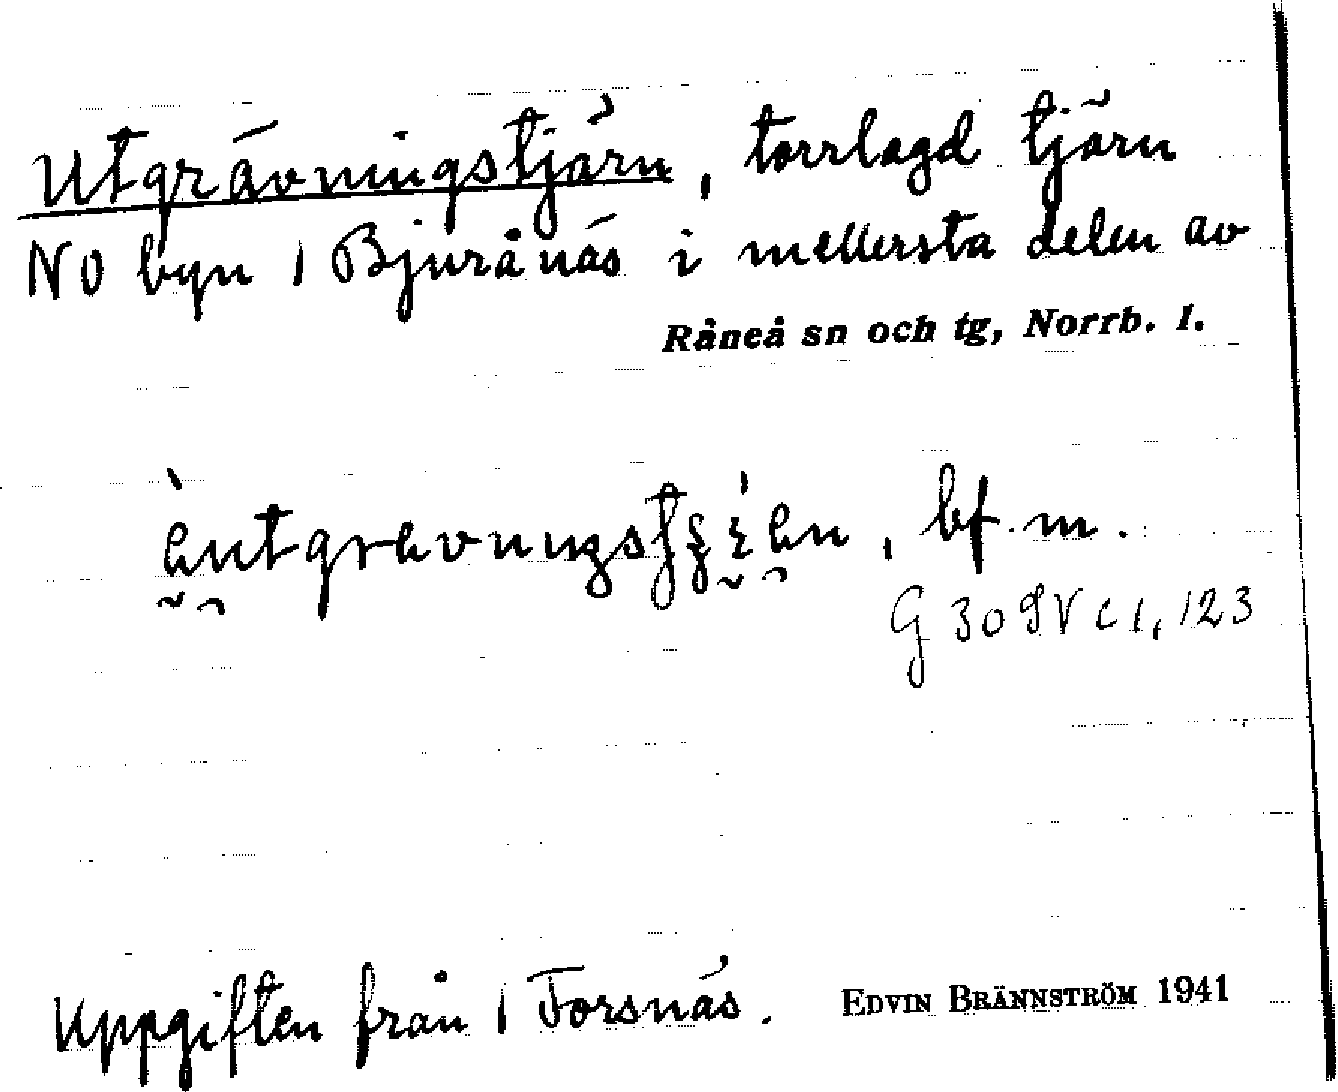 Utgrävningstjärn, torrlagd tjärn
NO byn 1 Bjurånäs i mellersta delen av
Råneå sn och tg, Norrb. l.
bf. m.
G 30 9 V c 1, 123
Uppgiften från 1 Forsnäs.
EDVIN BRÄNNSTRÖM 1941